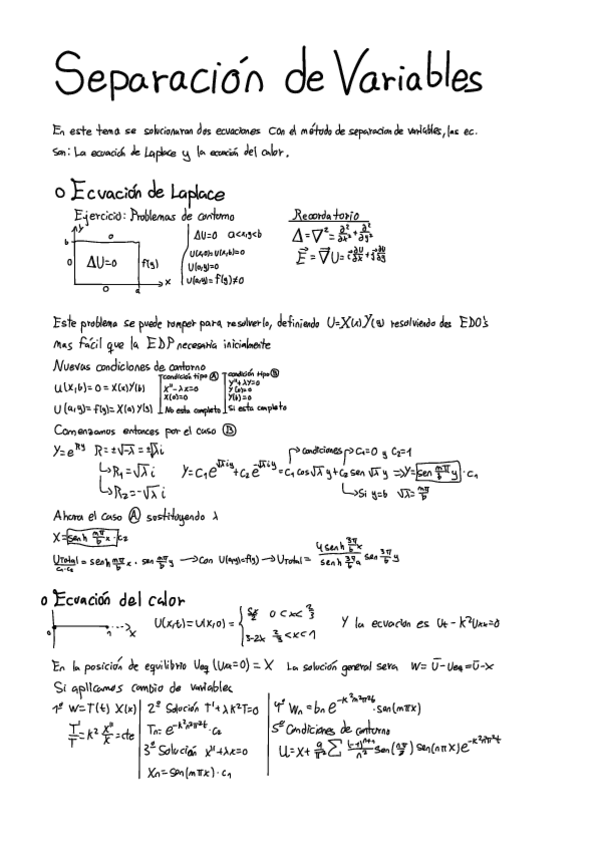 Separación de Variables
En este tema se solucionaran dos ecuaciones con el método de separacion de variables, las ec.
son: La ecuación de Laplace y la ecuación del calor.
o Ecuación de Laplace
Ejercicio: Problemas de contorno
y
b
0
0
ΔU=0
f(y)
0
a
x
ΔU=0
U(x,0)=U(x,b)=0
U(0,y)=0
U(a,y)=f(y)≠0
Recordatorio
Δ=∇²=∂²/∂x²+∂²/∂y²
E⃗=∇⃗U=i⃗ ∂U/∂x+j⃗ ∂U/∂y
Este problema se puede romper para resolverlo, definiendo U=X(x)Y(y) resolviendo dos EDO's
mas fácil que la EDP necesaria inicialmente
Nuevas condiciones de contorno
U(x,b)=0=X(x)Y(b)
U(a,y)=f(y)=X(a)Y(y)
condición tipo Ⓐ
X''-λx=0
X(0)=0
No esta completo
condición tipo Ⓑ
Y''+λY=0
Y(0)=0
Y(b)=0
Si esta completo
Comenzamos entonces por el caso Ⓑ
Y=e^{Ry} R=±√-λ=±√λ i
↳R₁=√λ i
↳R₂=-√λ i
Y=C₁e^{√λiy}+C₂e^{-√λiy}=C₁cos√λ y+C₂ sen √λ y ⇒Y=sen mπ/b y·C₁
condiciones → C₁=0 y C₂=1
↳Si y=b √λ=mπ/b
Ahora el caso Ⓐ sostituyendo λ
X=senh mπ/b x·C₂
UTotal/C₁·C₂=senh mπ/b x · sen mπ/b y →Con U(a,y)=f(y) →UTotal= 4senh 3π/b x / senh 3π/b a sen 3π/b y
o Ecuación del calor
0
1
x
U(x,t)=U(x,0)=
0<x<2/3
3-2x 2/3<x<1
Y la ecuacion es Ut-K²Uxx=0
En la posición de equilibrio Ueq (Uxx=0)=X La solución general sera W=Ū-Ueq=Ū-x
Si aplicamos cambio de variables
1º W=T(t) X(x)
T'/T=K² X''/X=cte
2º Solución T'+λK²T=0
Tn=e^{-K²n²π²t}·C₂
3º Solución X''+λx=0
Xn=sen(mπx)·C₁
4º Wn=bn e^{-K²n²π²t}·san(mπx)
5º Condiciones de contorno
U=X+9/π² Σ (-1)^{n+1}/n² sen(nπ/3) sen(nπx)e^{-K²n²π²t}